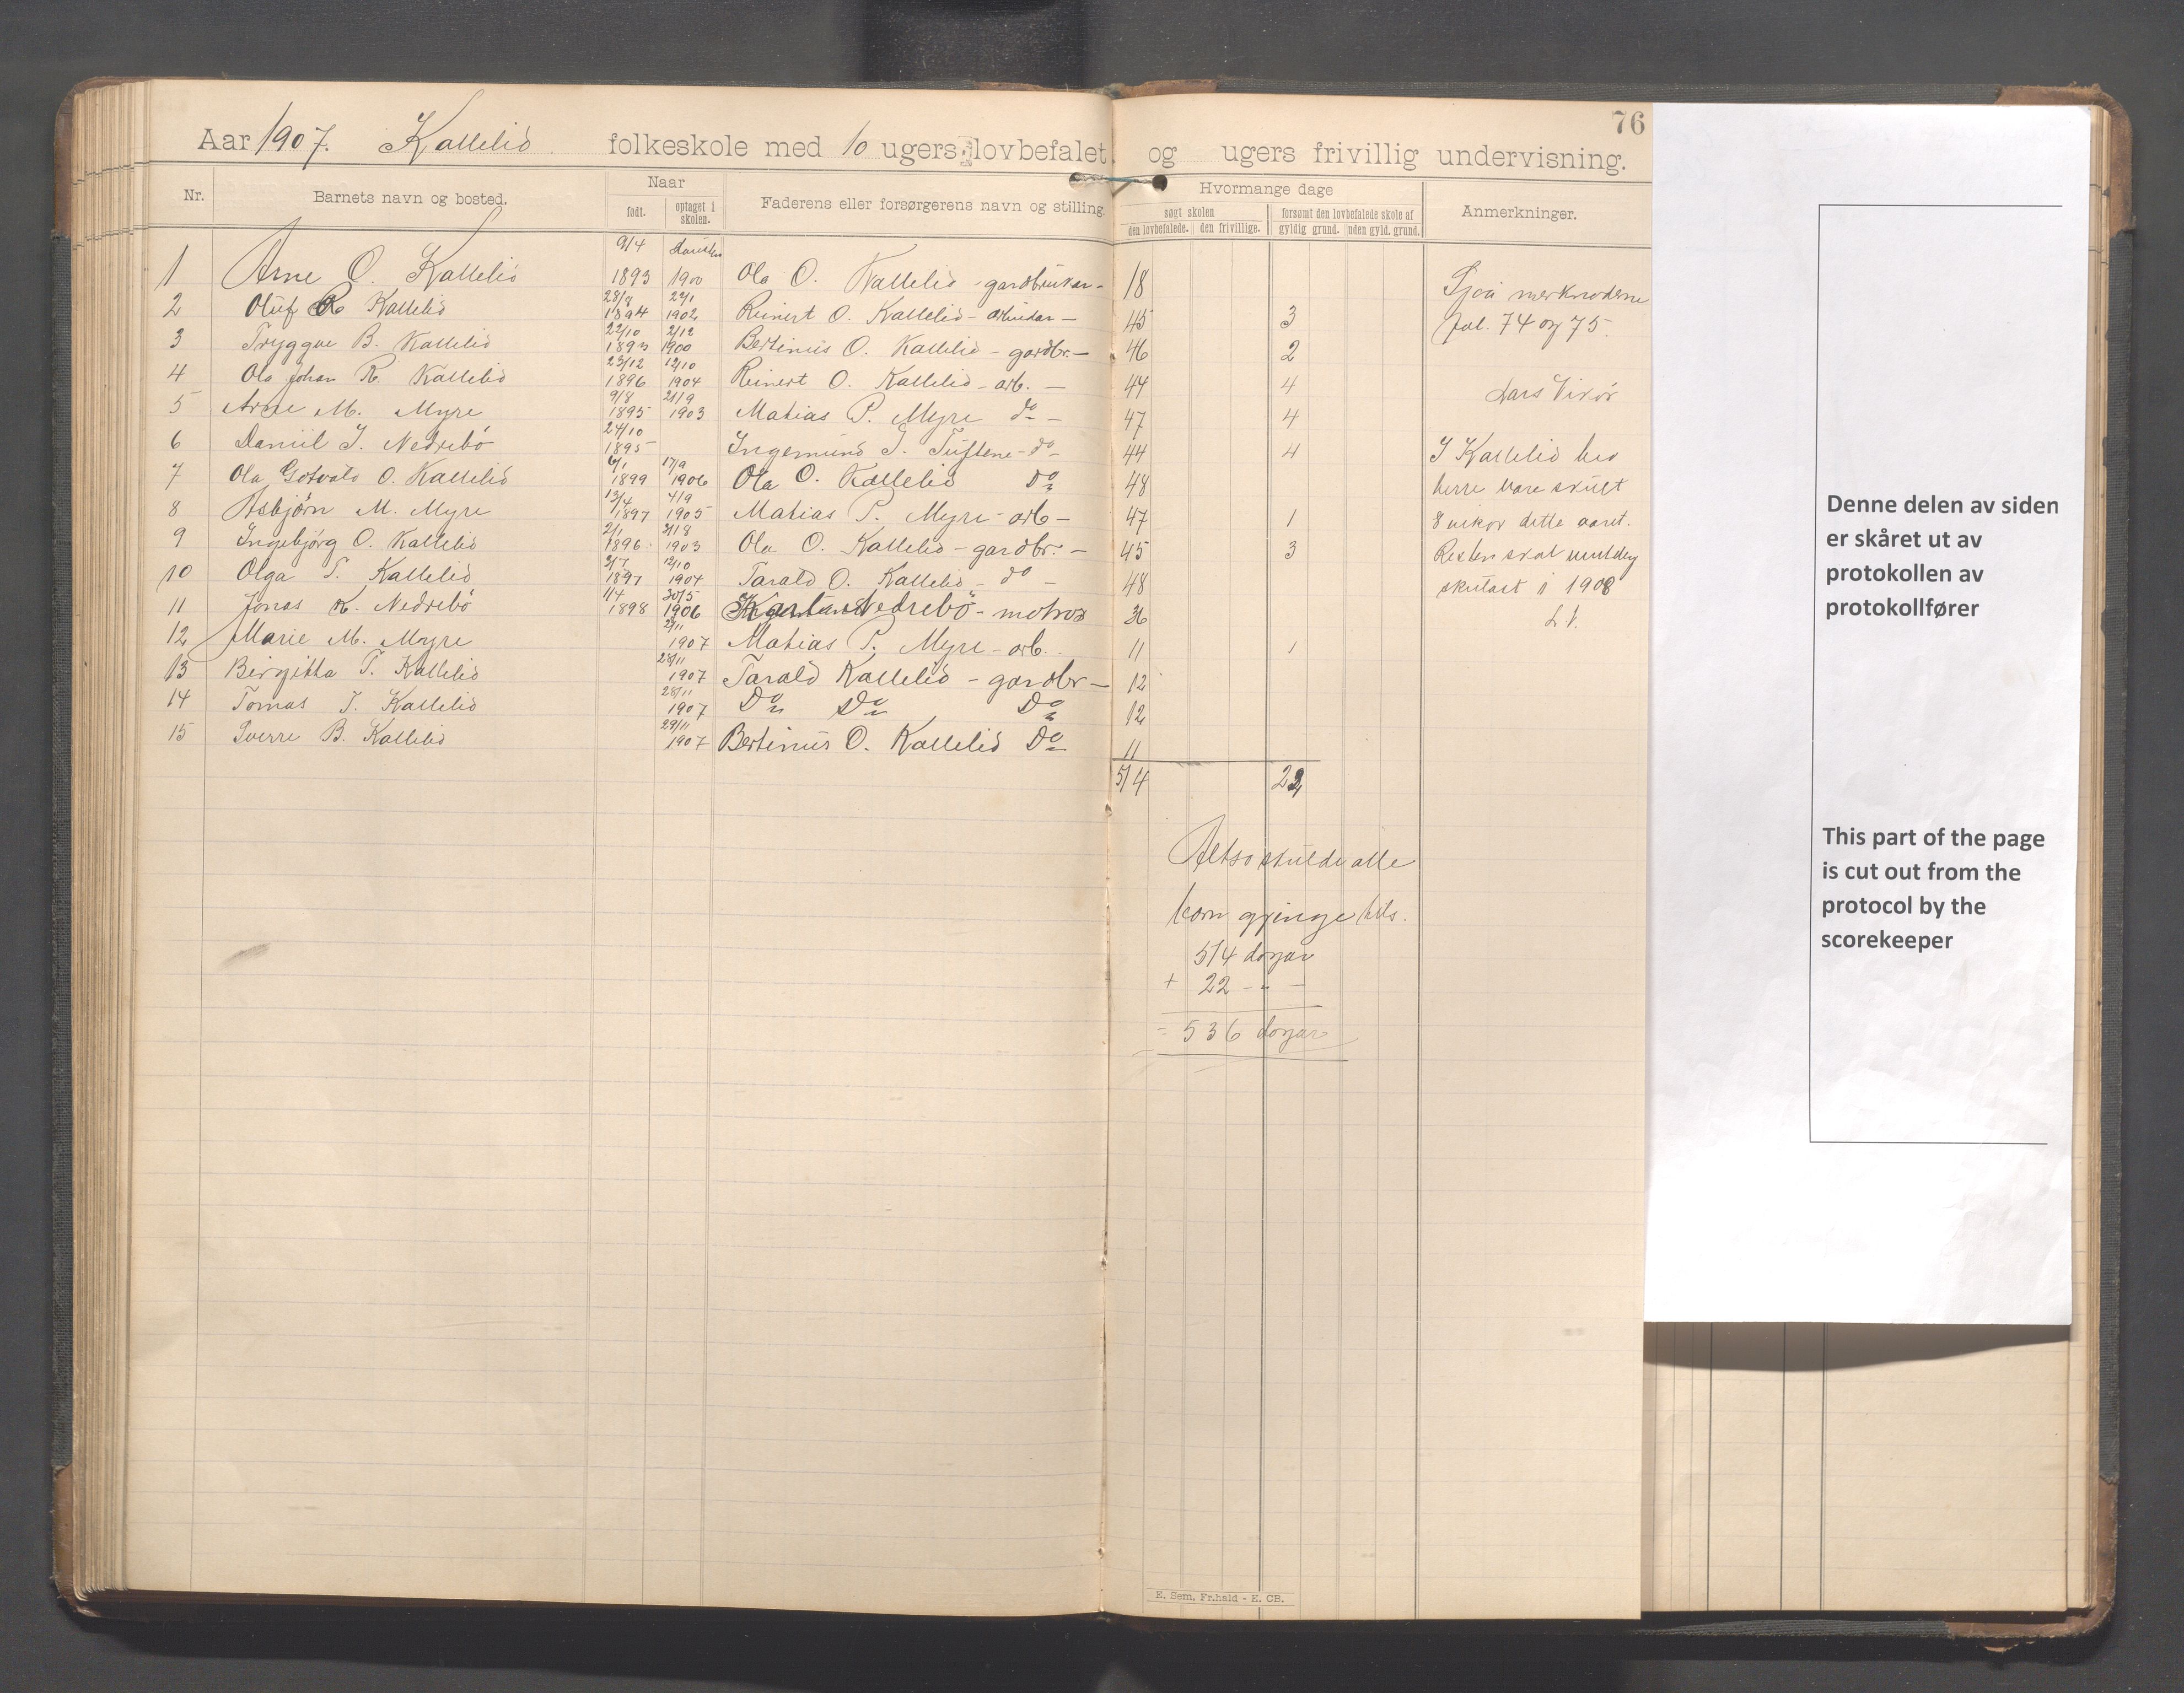 76
Aar 1907. Kallelid folkeskole med 10 ugers lovbefalet og ugers frivillig undervisning.
Nr. Barnets navn og bosted. Naar født. optaget i skolen. Faderens eller forsørgerens navn og stilling. Hvormange dage søgt skolen den lovbefalede. den frivillige. forsømt den lovbefalede skole af gyldig grund. uden gyld. grund. Anmerkninger.
1 Arne O. Kallelid 9/4 1893 1900 Ola O. Kallelid - gardbrukar - 18
2 Oluf R Kallelid 28/8 1894 22/1 1902 Reinert O. Kallelid - arbeidar - 45 3
3 Tryggve B. Kallelid 22/10 1893 2/12 1900 Bertinius O. Kallelid - gardbr. - 46 2
4 Ola Johan R. Kallelid 23/12 1896 12/10 1904 Reinert O. Kallelid - arb. - 44 4
5 Arne M. Myre 9/8 1895 21/9 1903 Matias P. Myre do - 47 4
6 Daniil I. Nedrebö 24/10 1895 Ingemund I. Tuftene - do - 44 4
7 Ola Gotvald O. Kallelid 6/1 1899 17/9 1906 Ola O. Kallelid Do 48
8 Asbjørn M. Myre 13/4 1897 4/9 1905 Matias P. Myre - arb - 47 1
9 Ingebjørg O. Kallelid 2/1 1896 21/8 1903 Ola O. Kallelid - gardbr. - 45 3
10 Olga T. Kallelid 3/7 1897 12/10 1904 Tarald O. Kallelid - do - 48
11 Jonas K. Nedrebö 1/4 1898 30/5 1906 Nedrebö - motros 36
12 Marie M. Myre 2/11 1907 Matias P. Myre - arb. 11 1
13 Bergitha T. Kallelid 28/11 1907 Tarald Kallelid - gardbr - 12
14 Tomas T. Kallelid 28/11 1907 Do Do Do 12
15 Sverre B. Kallelid 29/11 1907 Bertinius O. Kallelid Do 11
514 22
Sjaa merknaderne
fol. 74 og 75.
Lars Vikör
I Kallelid hev
berre vore skult
8 vikor dette aaret.
Resten skal
skulast i 1908
L V.
Altso skulde alle
born gjenge tils.
514 dagar
+ 22 - " -
= 536 dagar
E. Sem, Fr.hald - E. CB.
Denne delen av siden
er skåret ut av
protokollen av
protokollfører
This part of the page
is cut out from the
protocol by the
scorekeeper